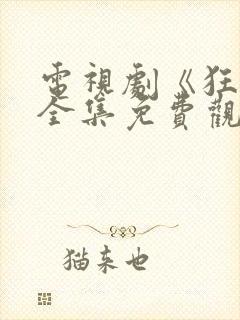 電視劇《狂
全集免費觀
猫来也